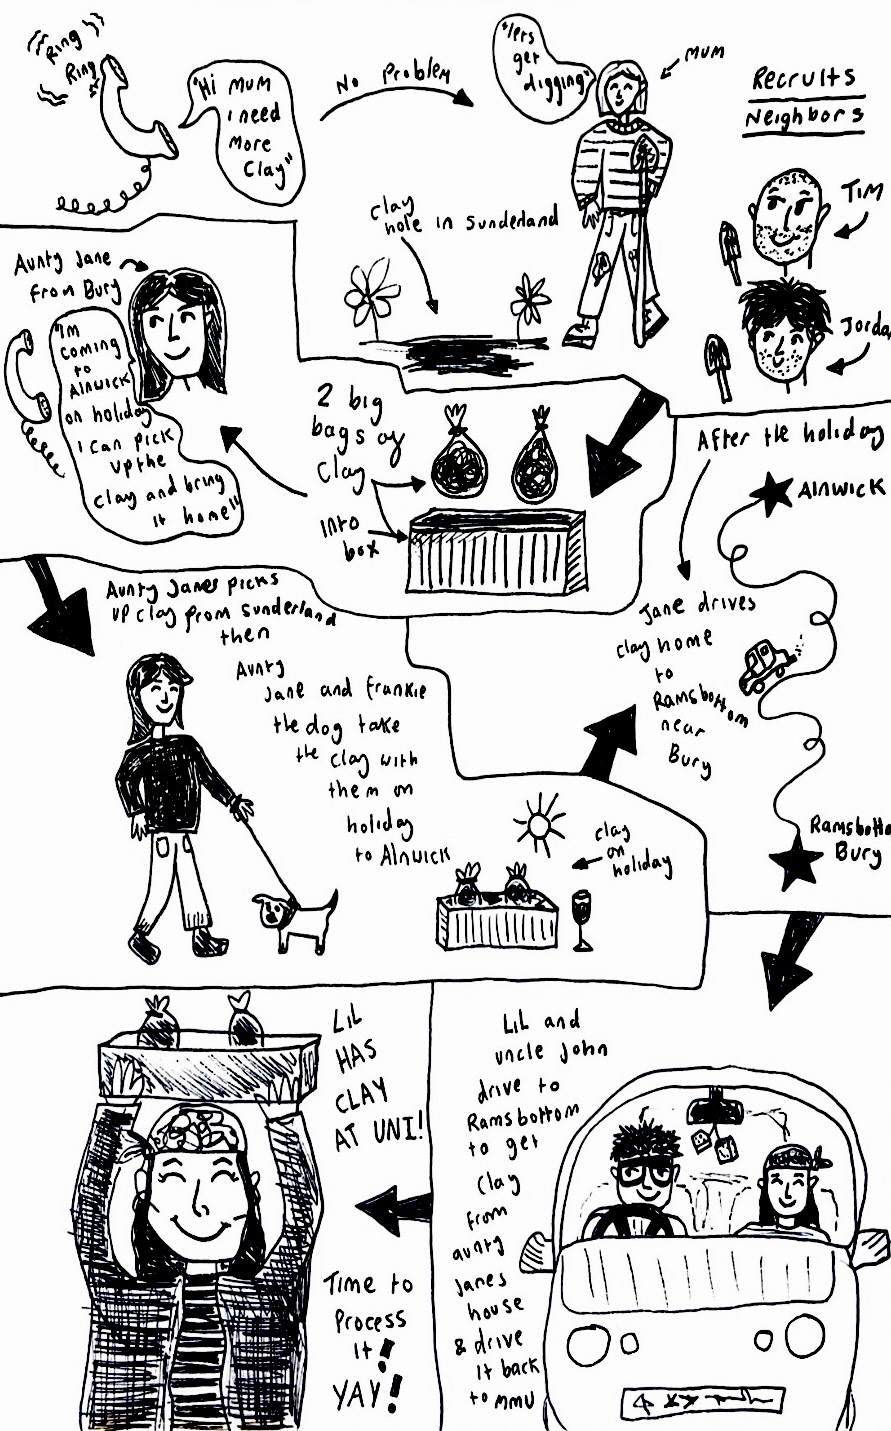 Ring
Ring
"Hi Mum
I need
More
Clay"
No Problem
"lets
get
digging"
Mum
Recruits
Neighbors
Tim
Jorda
clay
hole in Sunderland
2 big
bags of
Clay
Into
box
Aunty Jane
from Bury
"Im
coming
to
Alnwick
on holiday
I can pick
up the
clay and bring
it home"
Aunty Janes picks
up clay from Sunderland
then
Aunty
Jane and Frankie
the dog take
the clay with
them on
holiday
to Alnwick
clay
on
holiday
After the holiday
Alnwick
Jane drives
clay home
to
Ramsbottom
near
Bury
Ramsbotto
Bury
Lil and
uncle John
drive to
Ramsbottom
to get
clay
from
aunty
Janes
house
& drive
it back
to MMU
LIL
HAS
CLAY
AT UNI!
Time to
Process
it!
YAY!